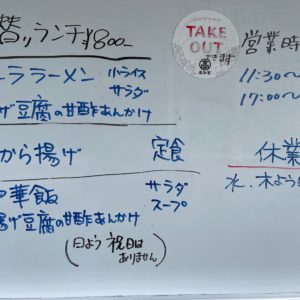 替りランチ ¥800-
ーララーメン 小ライス
サラダ
げ豆腐の甘酢あんかけ
から揚げ 定食
華飯 サラダ
スープ
揚げ豆腐の甘酢あんかけ
(日よう 祝日は
ありません)
TAKE
OUT
できます
営業時
11:30～
17:00～
休業
水.木よう